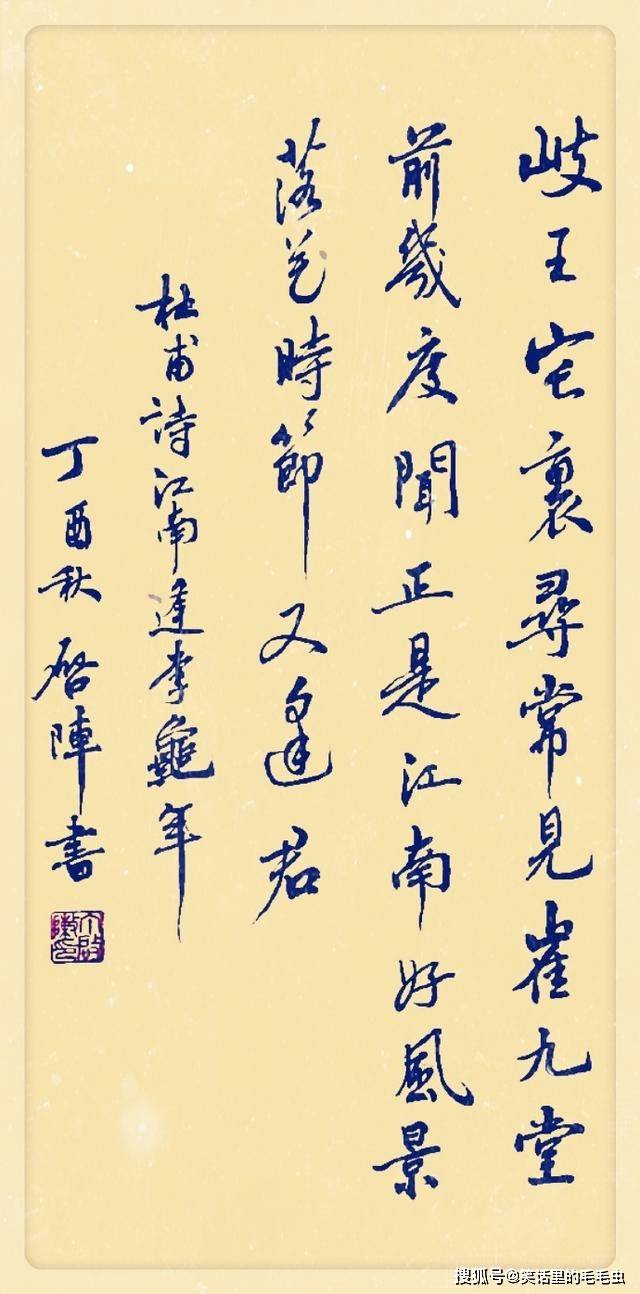 岐王宅裏尋常見崔九堂
前幾度聞正是江南好風景
落花時節又逢君
杜甫詩江南逢李龜年
丁酉秋啓陣書
搜狐号@笑话里的毛毛虫